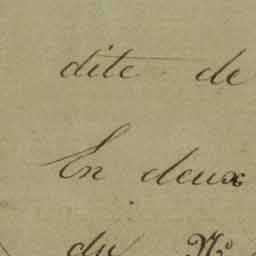 dite de
En deux
du N°